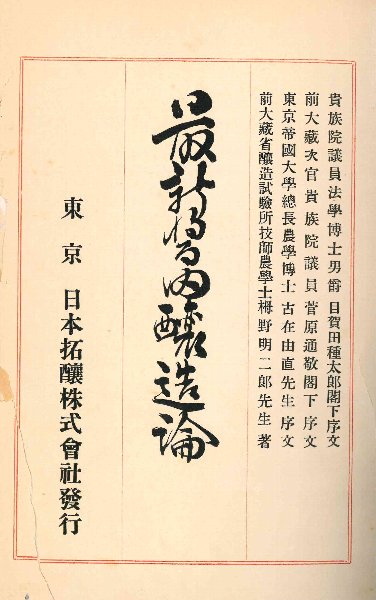 貴族院議員法學博士男爵 目賀田種太郎閣下序文
前大藏次官貴族院議員 菅原通敬閣下序文
東京帝國大學總長農學博士 古在由直先生序文
前大藏省釀造試驗所技師農學士 栂野明二郎先生著
最新醬油釀造論
東京 日本拓釀株式會社發行